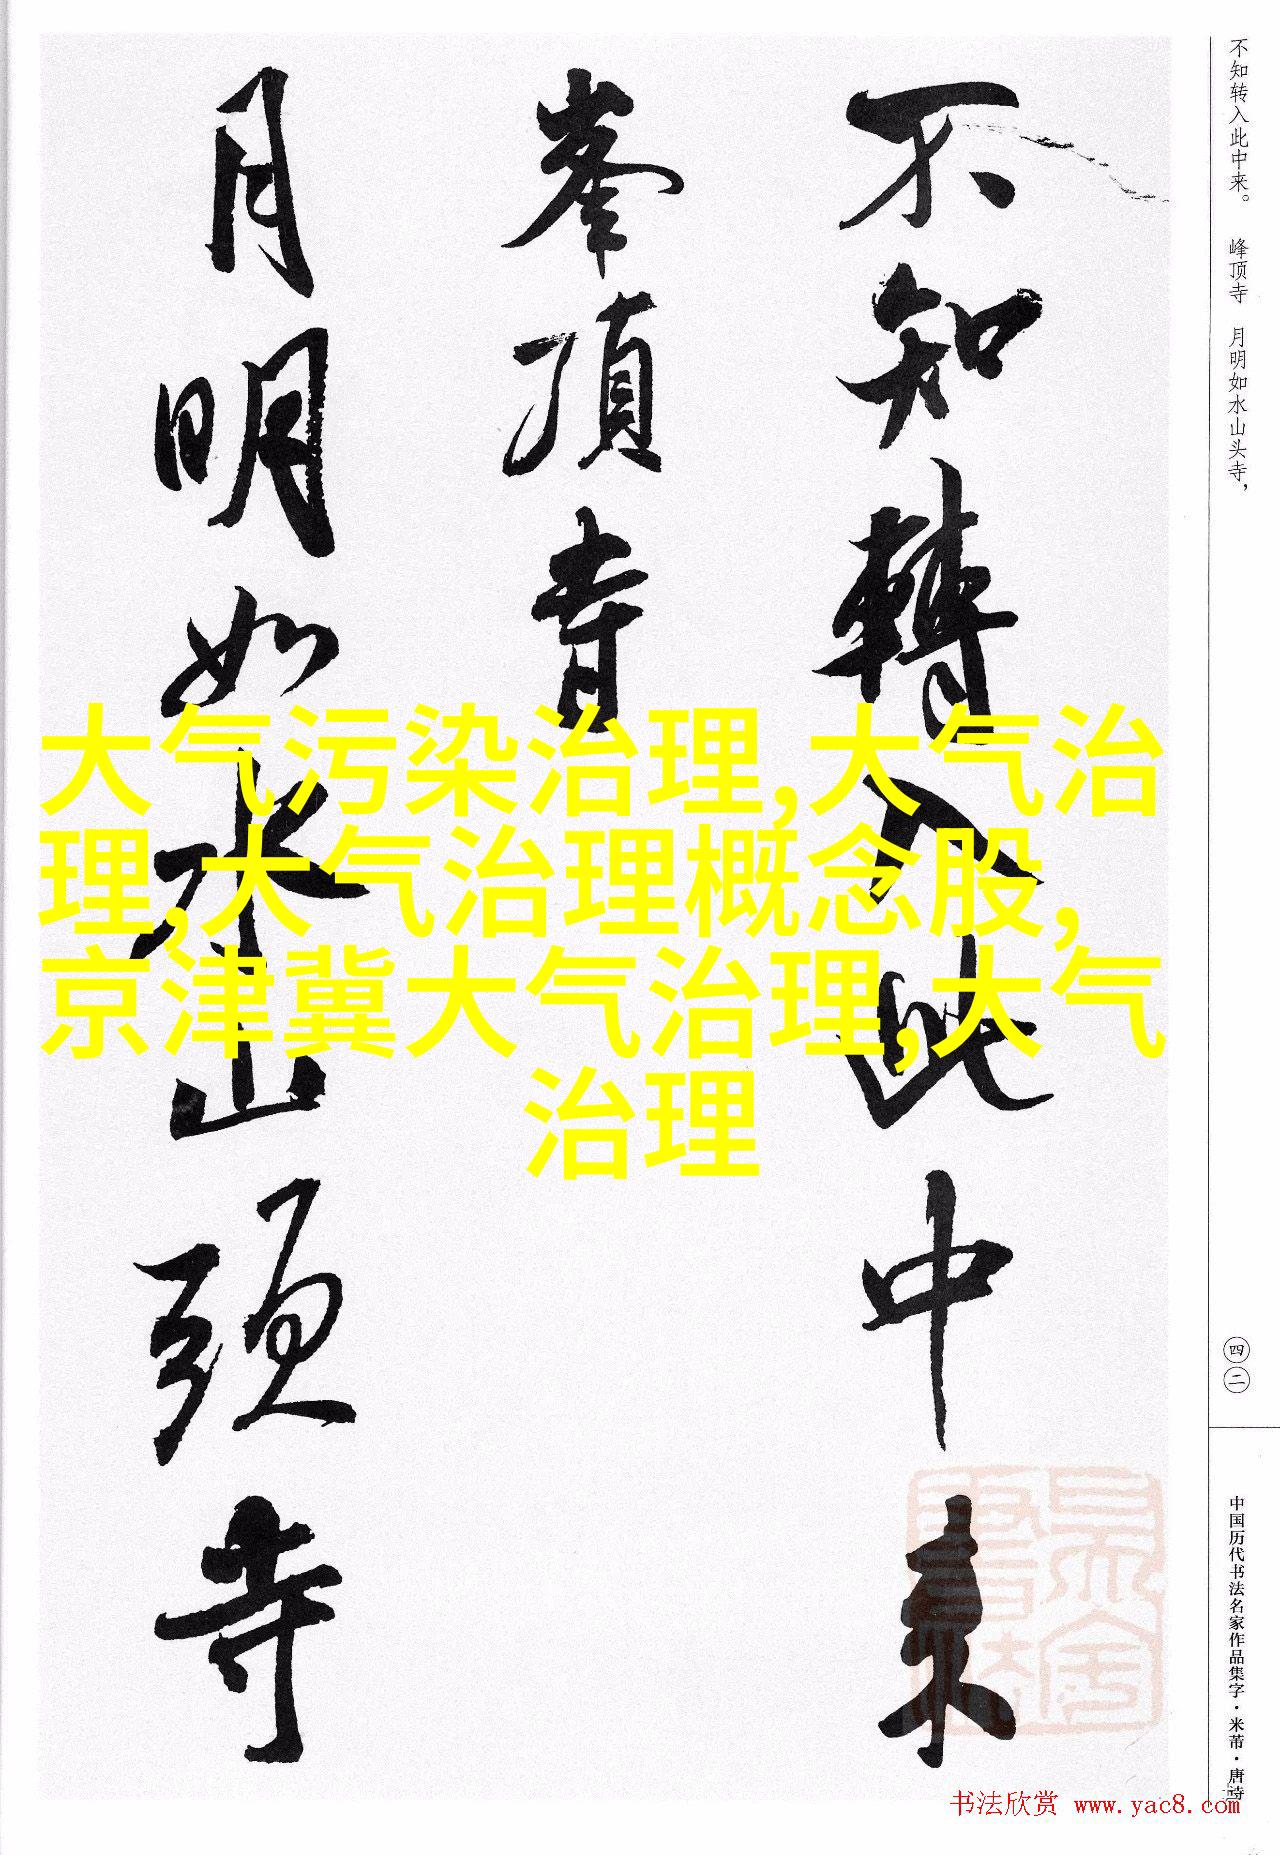 不知轉入此中来
峯頂寺
月明如水山頭寺
不知转入此中来。 峰顶寺 月明如水山头寺，
四二
中国历代书法名家作品集字·米芾·唐诗
大气污染治理,大气治
理,大气治理概念股,
京津冀大气治理,大气
治理
书法欣赏 www.yac8.com